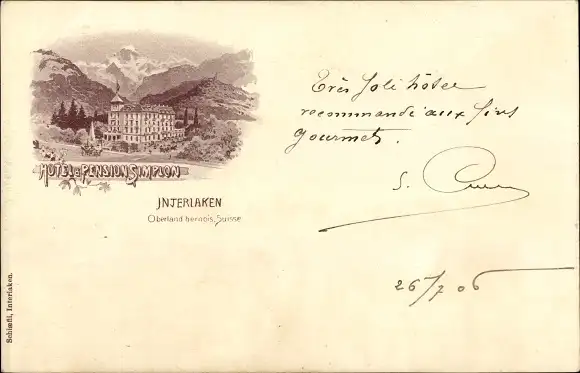 HOTEL & PENSION SIMPLON
INTERLAKEN
Oberland bernois, Suisse
Très Joli hôtel
recommandé aux fins
gourmets.
S.
26/7 06
Schlæfli, Interlaken.